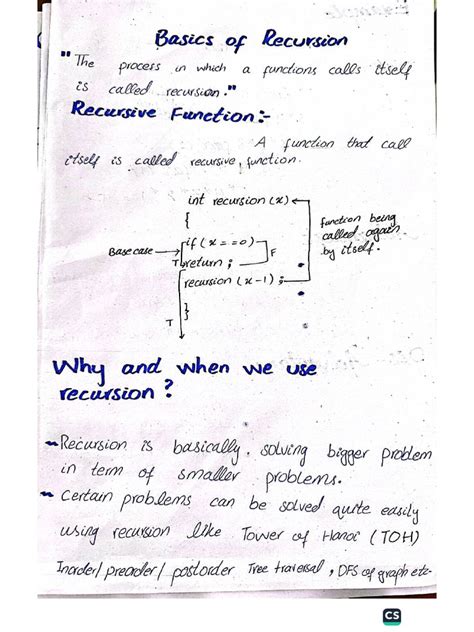 Basics of Recursion
"The process in which a functions calls itself
is called recursion."
Recursive Function:-
A function that call
itself is called recursive function.
int recursion (x)
{
if (x==0)
Base case
F
T return ;
recursion (x-1) ;
}
T
function being
called again
by itself.
Why and when we use
recursion?
Recursion is basically, solving bigger problem
in term of smaller problems.
Certain problems can be solved quite easily
using recursion like Tower of Hanoi (TOH)
Inorder/ preorder/ postorder Tree traversal, DFS of graph etc-
CS